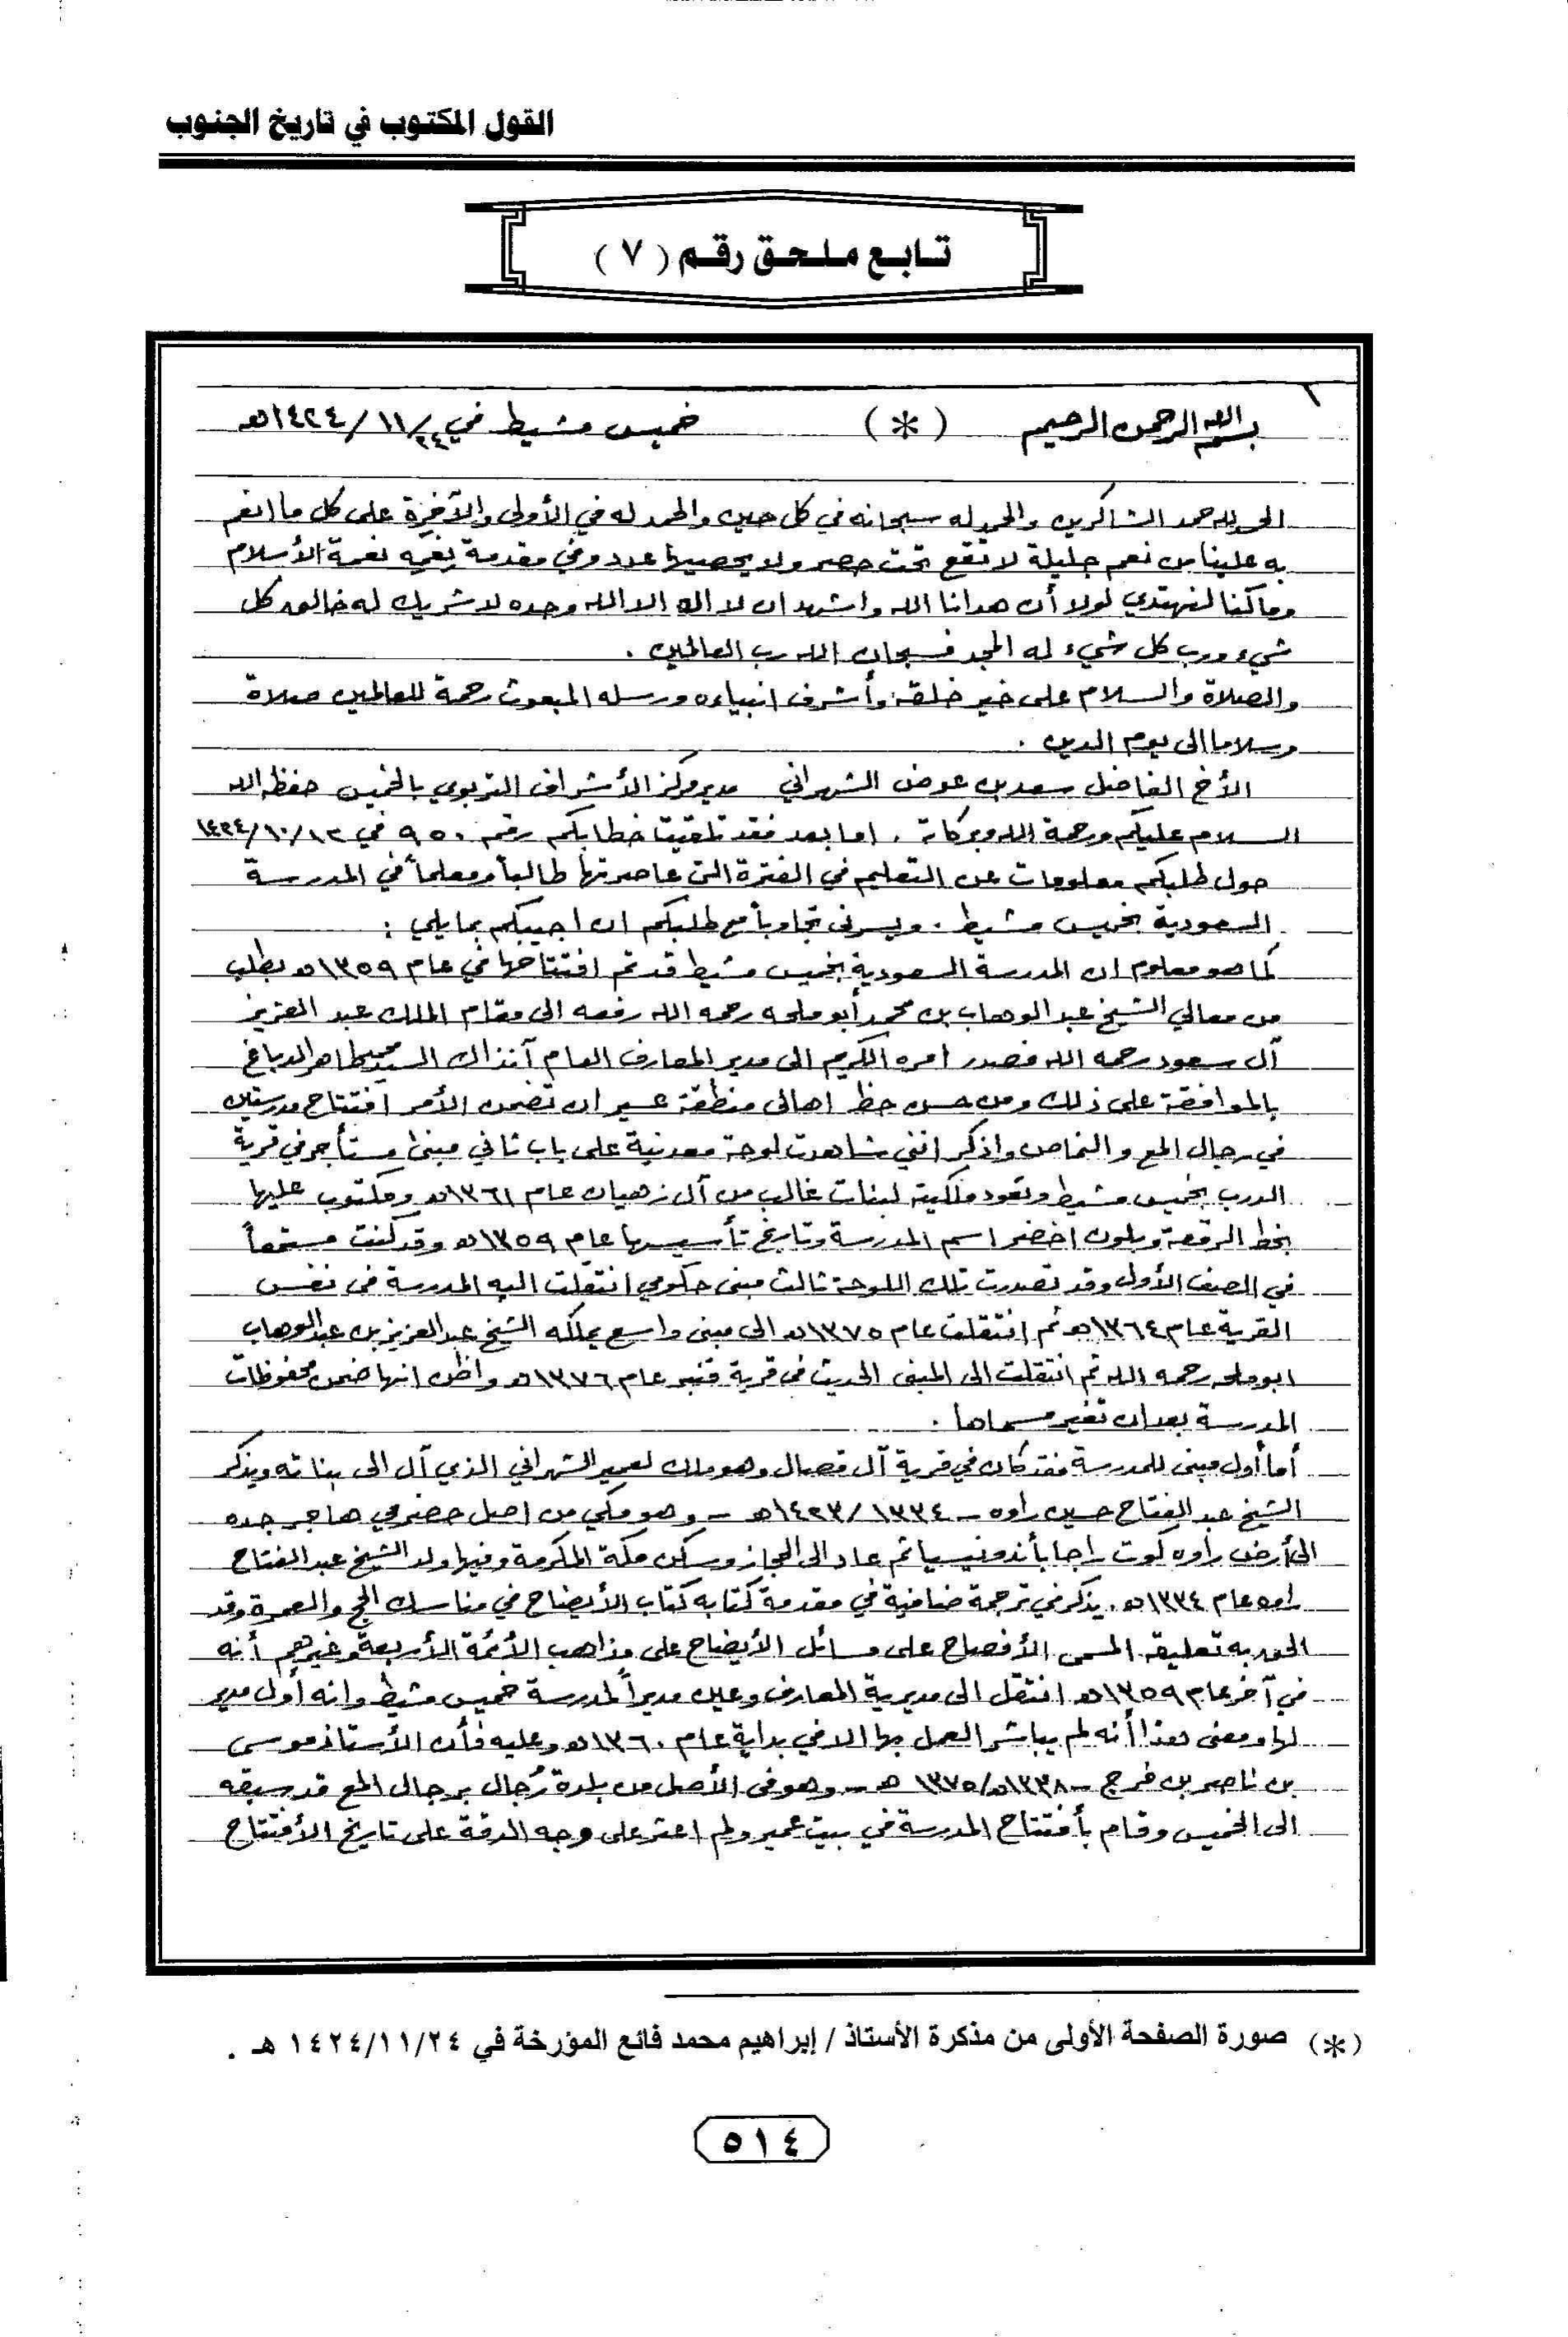 القول المكتوب في تاريخ الجنوب
تابع ملحق رقم ( ٧ )
بسم الله الرحمن الرحيم ( * ) خميس مشيط في ٢٤ / ١١ / ١٤٢٤هـ
الحمد لله حمد الشاكرين والحمد له سبحانه في كل حين والحمد له في الأولى والآخرة على كل ما انعم
به علينا من نعم جليلة لا تقع تحت حصر ولا يحصيها عدد وفي مقدمة نعمه نعمة الأسلام
وما كنا لنهتدي لولا أن هدانا الله واشهد ان لا اله الا الله وحده لا شريك له خالق كل
شيء ورب كل شيء له المجد فسبحان الله رب العالمين .
والصلاة والسلام على خير خلقه وأشرف انبياءه ورسله المبعوث رحمة للعالمين صلاة
وسلاما الى يوم الدين .
الأخ الفاضل سعد بن عوض الشهراني مدير مركز الأشراف التربوي بالخميس حفظه الله
السلام عليكم ورحمة الله وبركاته . اما بعد فقد تلقيت خطابكم رقم ٩٥٠ في ١٣/١٠/١٤٢٤
حول طلبكم معلومات عن التعليم في الفترة التي عاصرتها طالباً ومعلماً في المدرسة
السعودية بخميس مشيط . ويسرني تجاوباً مع طلبكم ان اجيبكم بما يلي :
كما هو معلوم ان المدرسة السعودية بخميس مشيط قد تم افتتاحها في عام ١٣٥٩هـ بطلب
من معالي الشيخ عبد الوهاب بن محمد أبو ملحه رحمه الله رفعه الى مقام الملك عبد العزيز
آل سعود رحمه الله فصدر امره الكريم الى مدير المعارف العام آنذاك السيد محمد طاهر الدباغ
بالموافقة على ذلك ومن حسن حظ اهالي منطقة عسير ان تضمن الأمر افتتاح مدرستين
في رجال المع والنماص واذكر انني شاهدت لوحة معدنية على باب ثاني مبنى مستأجر في قرية
الدرب بخميس مشيط وتعود ملكيته لبنات غالب من آل زهيان عام ١٣٦١هـ ومكتوب عليها
بخط الرقعة وبلون اخضر اسم المدرسة وتاريخ تأسيسها عام ١٣٥٩هـ وقد كنت مستمعاً
في الصف الأول وقد تصدرت تلك اللوحة ثالث مبنى حكومي انتقلت اليه المدرسة في نفس
القرية عام ١٣٦٤هـ ثم انتقلت عام ١٣٧٥هـ الى مبنى واسع يملكه الشيخ عبد العزيز بن عبد الوهاب
ابو ملحه رحمه الله ثم انتقلت الى المبنى الحديث في قرية قنبر عام ١٣٧٦هـ واظن انها ضمن محفوظات
المدرسة بعد ان تغير مسماها .
أما أول مبنى للمدرسة فقد كان في قرية آل قصال وهو ملك لعمير الشهراني الذي آل الى بناته ويذكر
الشيخ عبد الفتاح حسين راوه ـ ١٣٣٤ / ١٤٢٣هـ ـ وهو مكي من اصل حضرمي هاجر جده
الى أرض راوه كوت راجا بأندونيسيا ثم عاد الى الحجاز وسكن مكة المكرمة وفيها ولد الشيخ عبد الفتاح
راوه عام ١٣٣٤هـ . يذكر في ترجمة ضافية في مقدمة كتابه كتاب الأيضاح في مناسك الحج والعمرة وقد
الحق به تعليقه المسمى الأفصاح على مسائل الأيضاح على مذاهب الأئمة الأربعة وغيرهم أنه
في آخر عام ١٣٥٩هـ انتقل الى مديرية المعارف وعين مديراً لمدرسة خميس مشيط وانه أول مدير
لها ومعنى هذا أنه لم يباشر العمل بها الا في بداية عام ١٣٦٠هـ وعليه فأن الأستاذ موسى
بن ناصر بن فرج ـ ١٣٣٨هـ/١٣٧٥ هـ ـ وهو في الأصل من بلدة رُجال برجال المع قد سبقه
الى الخميس وقام بأفتتاح المدرسة في بيت عمير ولم اعثر على وجه الدقة على تاريخ الأفتتاح
(*) صورة الصفحة الأولى من مذكرة الأستاذ / إبراهيم محمد فائع المؤرخة في ١٤٢٤/١١/٢٤ هـ .
٥١٤